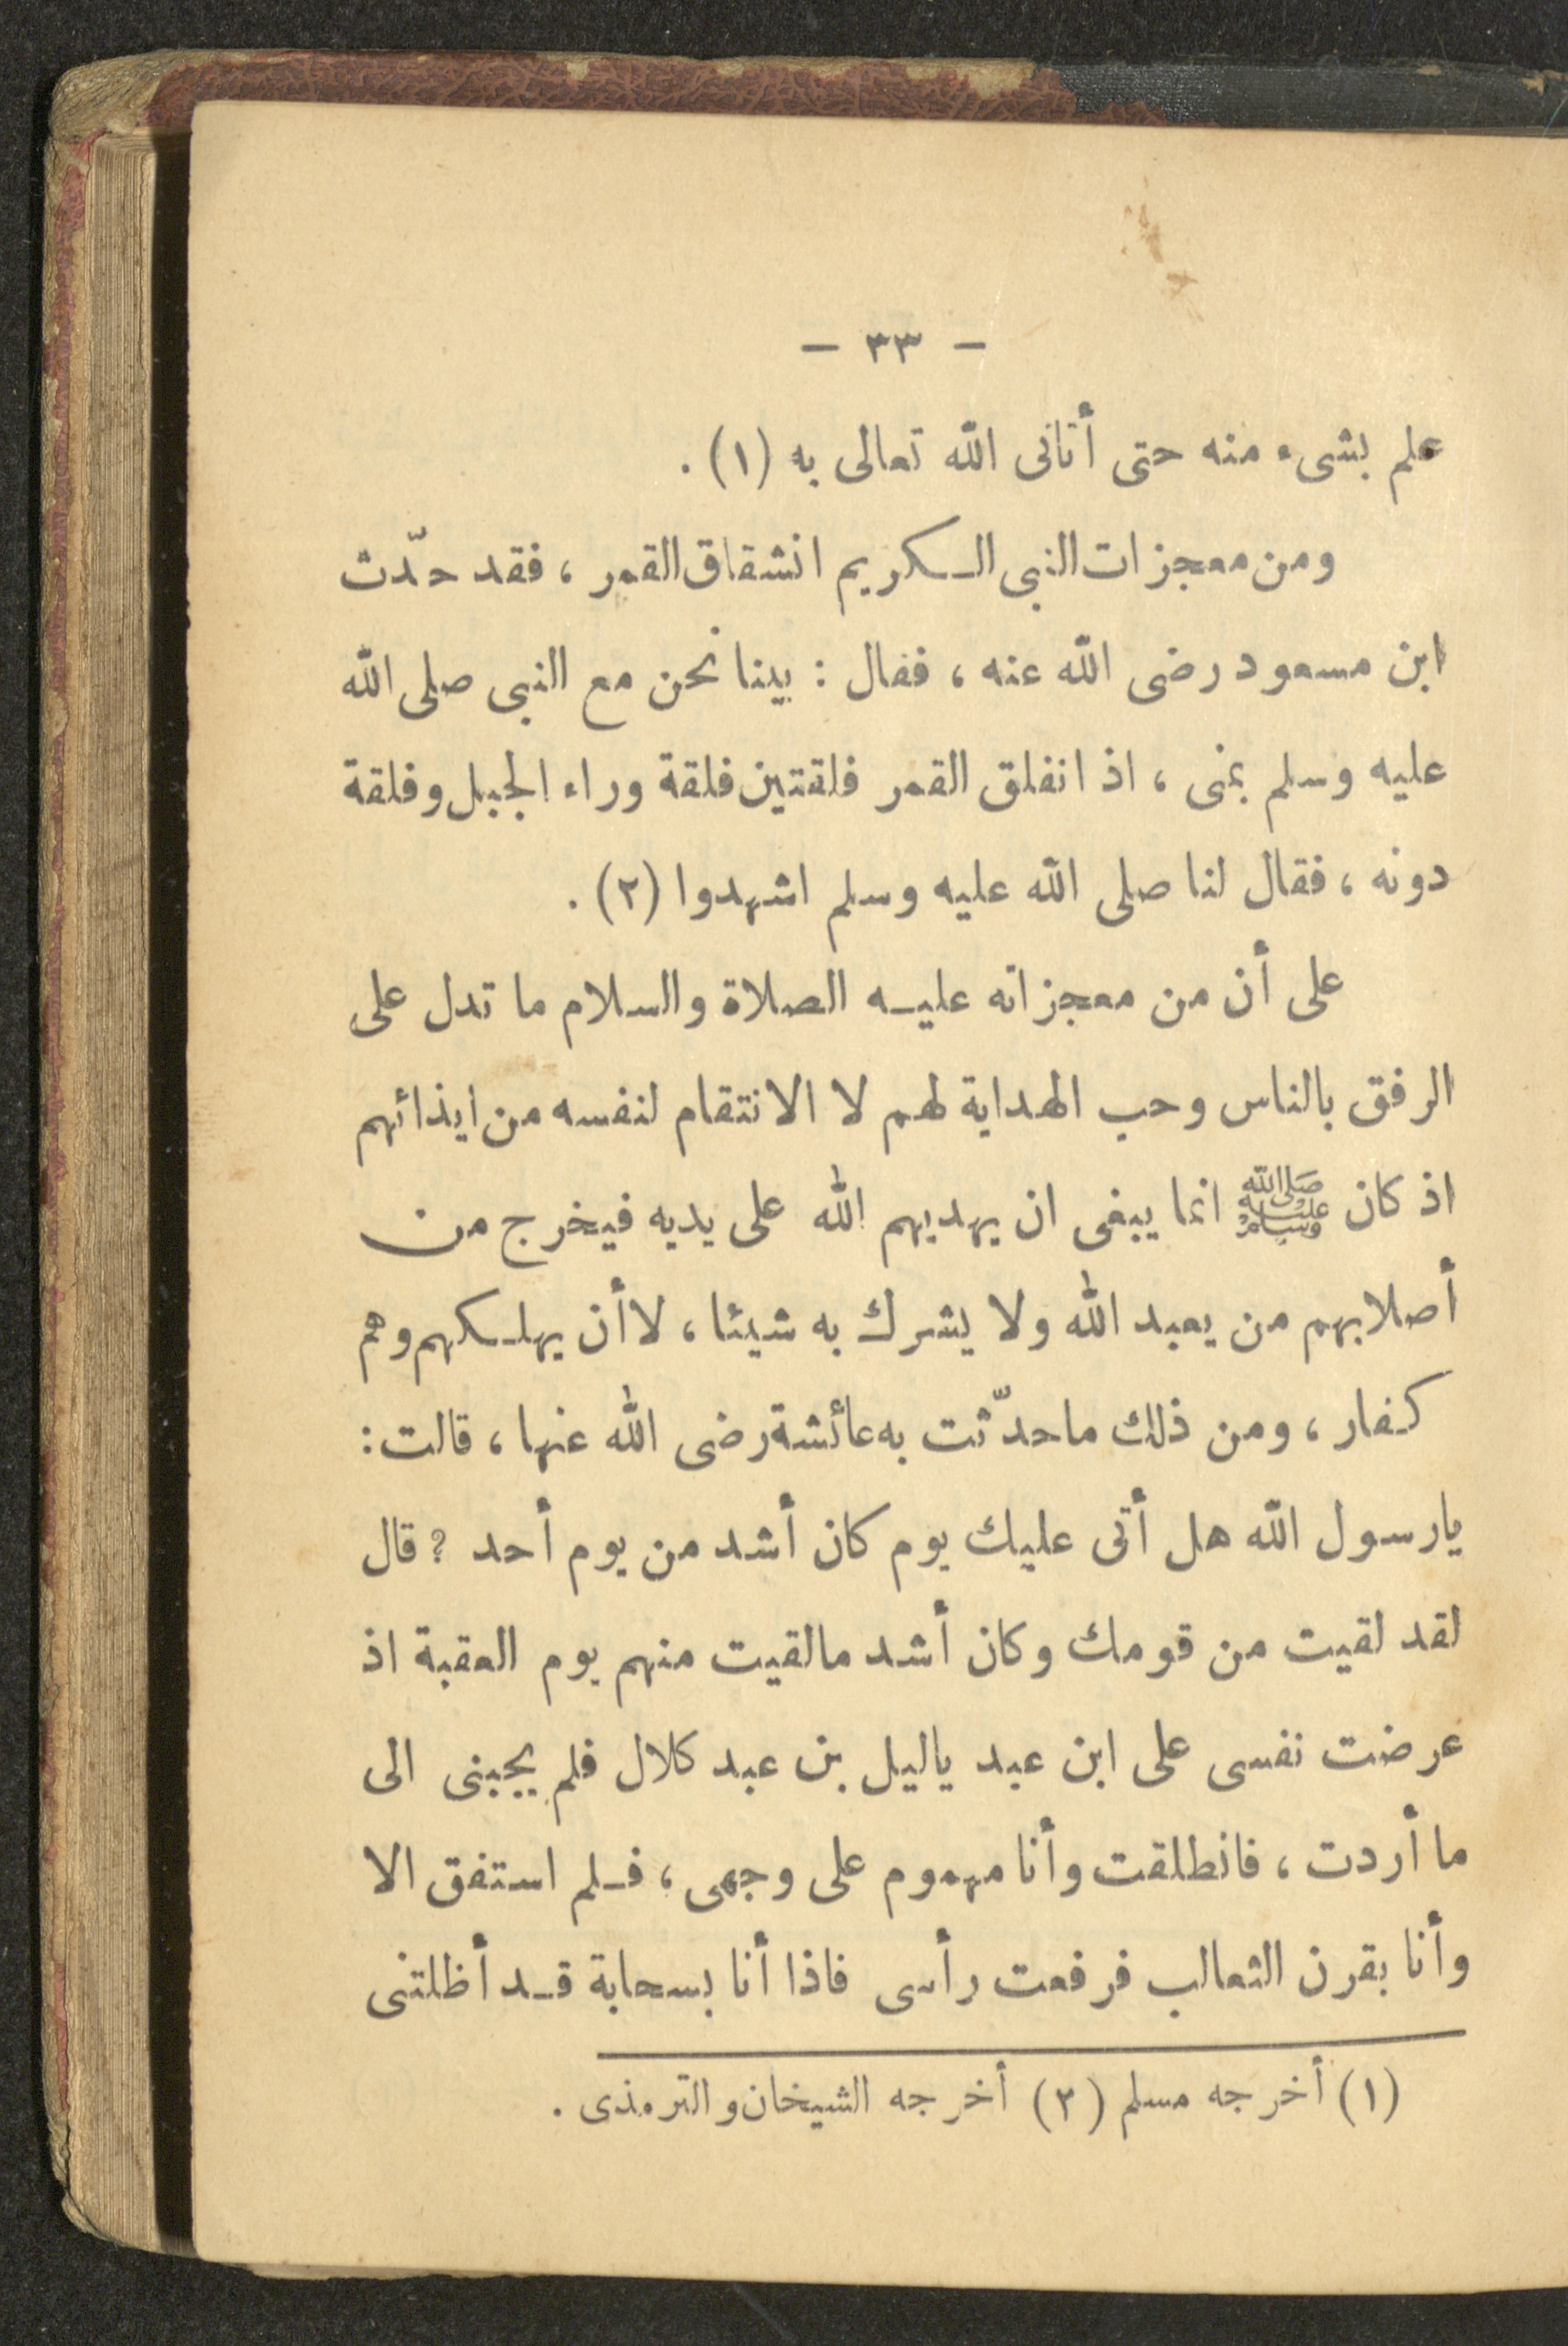 — ٣٣ —
علم بشىء منه حتى أتانى الله تعالى به (١) .
ومن معجزات النبى الكريم انشقاق القمر ، فقد حدّث
ابن مسعود رضى الله عنه ، فقال : بينا نحن مع النبى صلى الله
عليه وسلم بمنى ، اذ انفلق القمر فلقتين فلقة وراء الجبل وفلقة
دونه ، فقال لنا صلى الله عليه وسلم اشهدوا (٢) .
على أن من معجزاته عليه الصلاة والسلام ما تدل على
الرفق بالناس وحب الهداية لهم لا الانتقام لنفسه من ايذائهم
اذ كان ﷺ انما يبغى ان يهديهم الله على يديه فيخرج من
أصلابهم من يعبد الله ولا يشرك به شيئا ، لا أن يهلكهم وهم
كفار ، ومن ذلك ما حدّثت به عائشة رضى الله عنها ، قالت :
يارسول الله هل أتى عليك يوم كان أشد من يوم أحد ? قال
لقد لقيت من قومك وكان أشد مالقيت منهم يوم العقبة اذ
عرضت نفسى على ابن عبد ياليل بن عبد كلال فلم يجبنى الى
ما أردت ، فانطلقت وأنا مهموم على وجهى ، فلم استفق الا
وأنا بقرن الثعالب فرفعت رأسى فاذا أنا بسحابة قد أظلتنى
(١) أخرجه مسلم (٢) أخرجه الشيخان والترمذى .